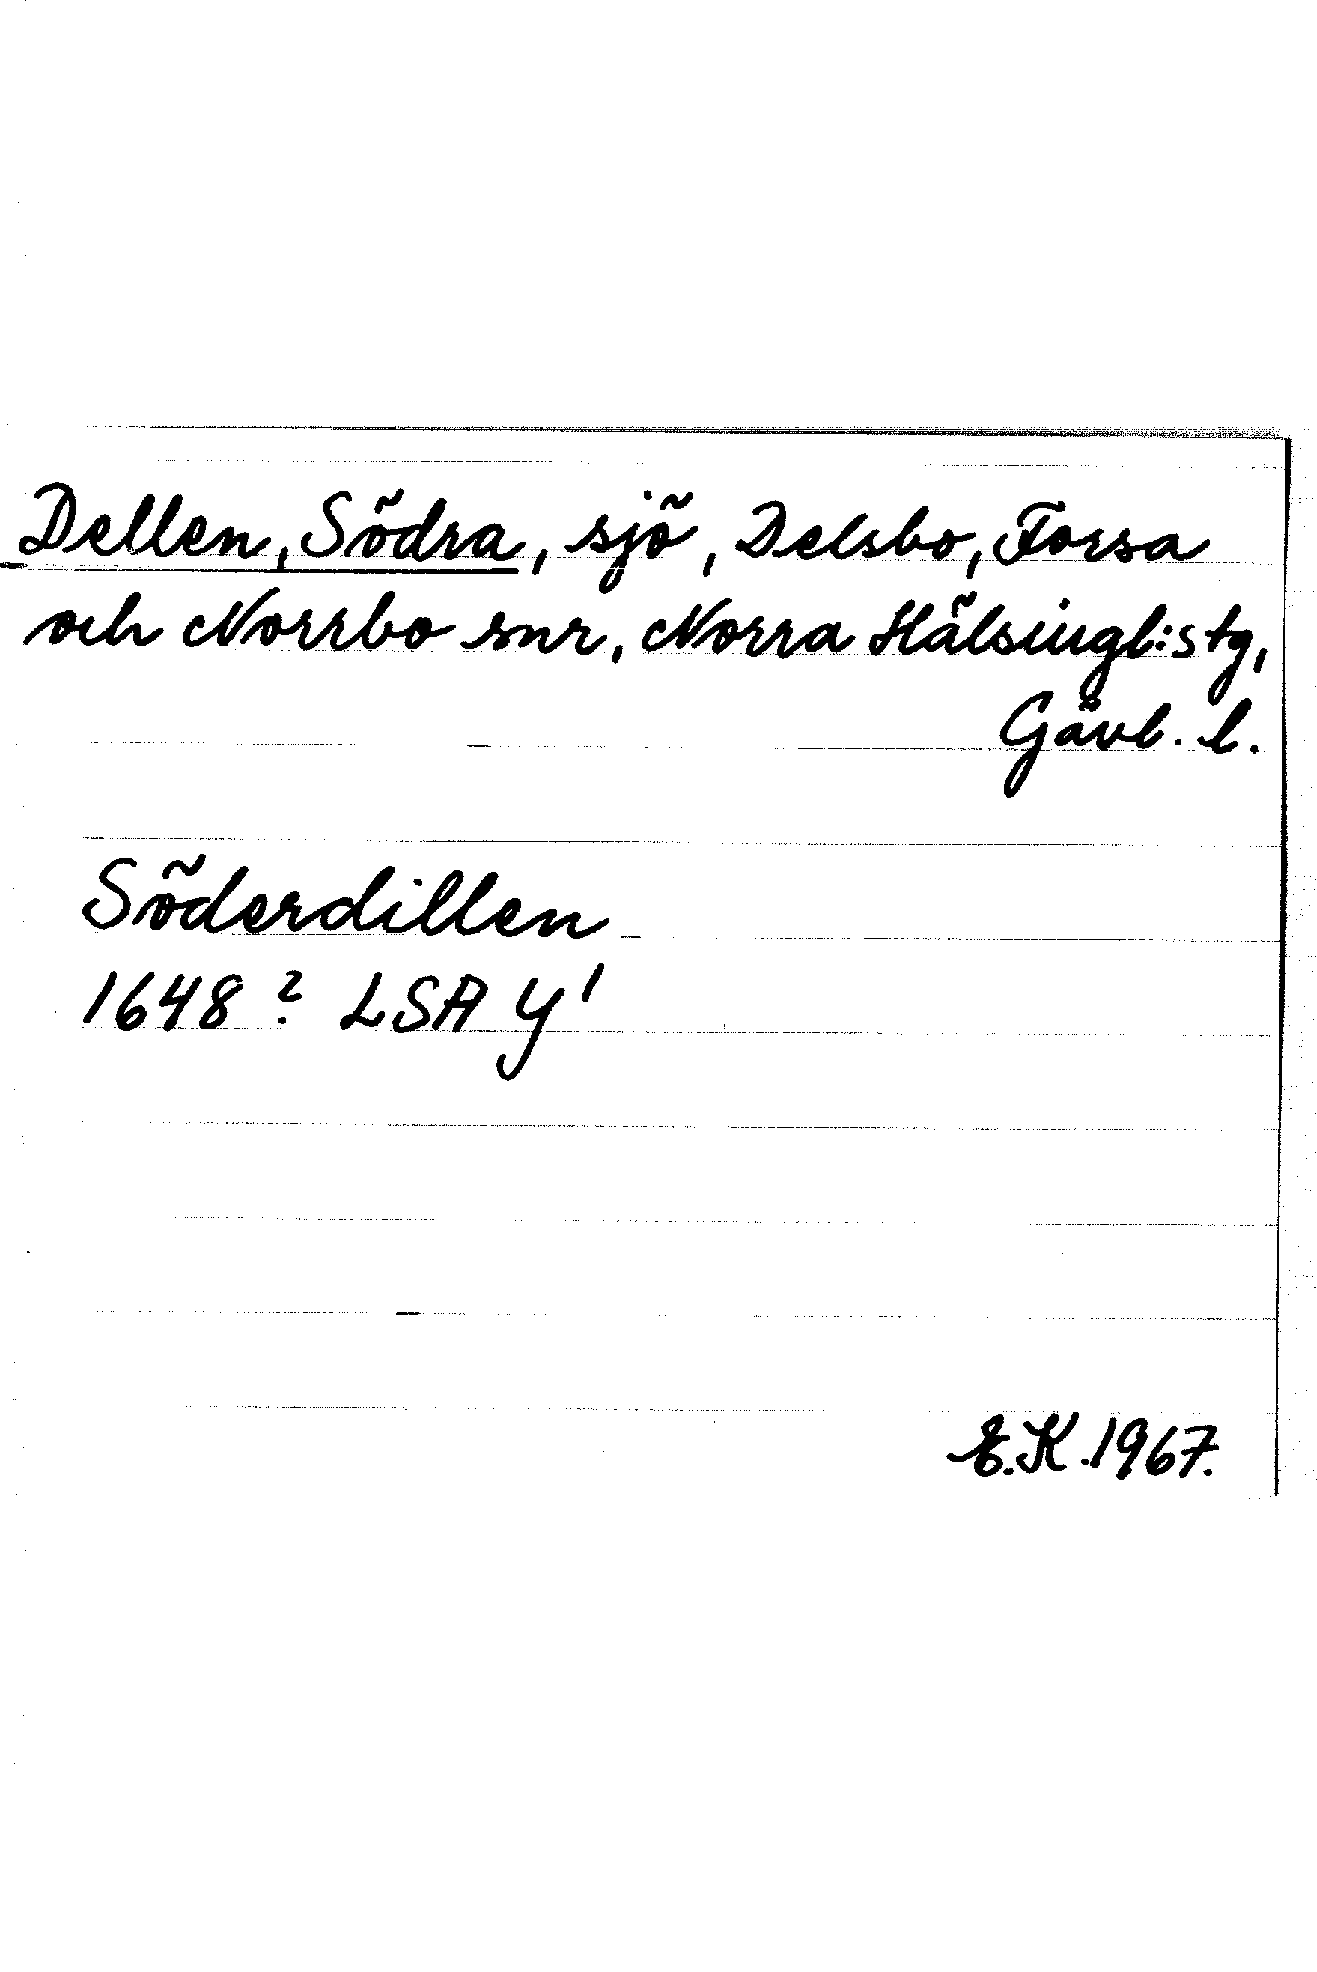 Dellen, Södra, sjö, Delsbo, Forsa
och Norrbo snr, Norra Hälsingl:s tg,
Gävl. l.
Söderdillen
1648? LSA Y¹
E.K. 1967.